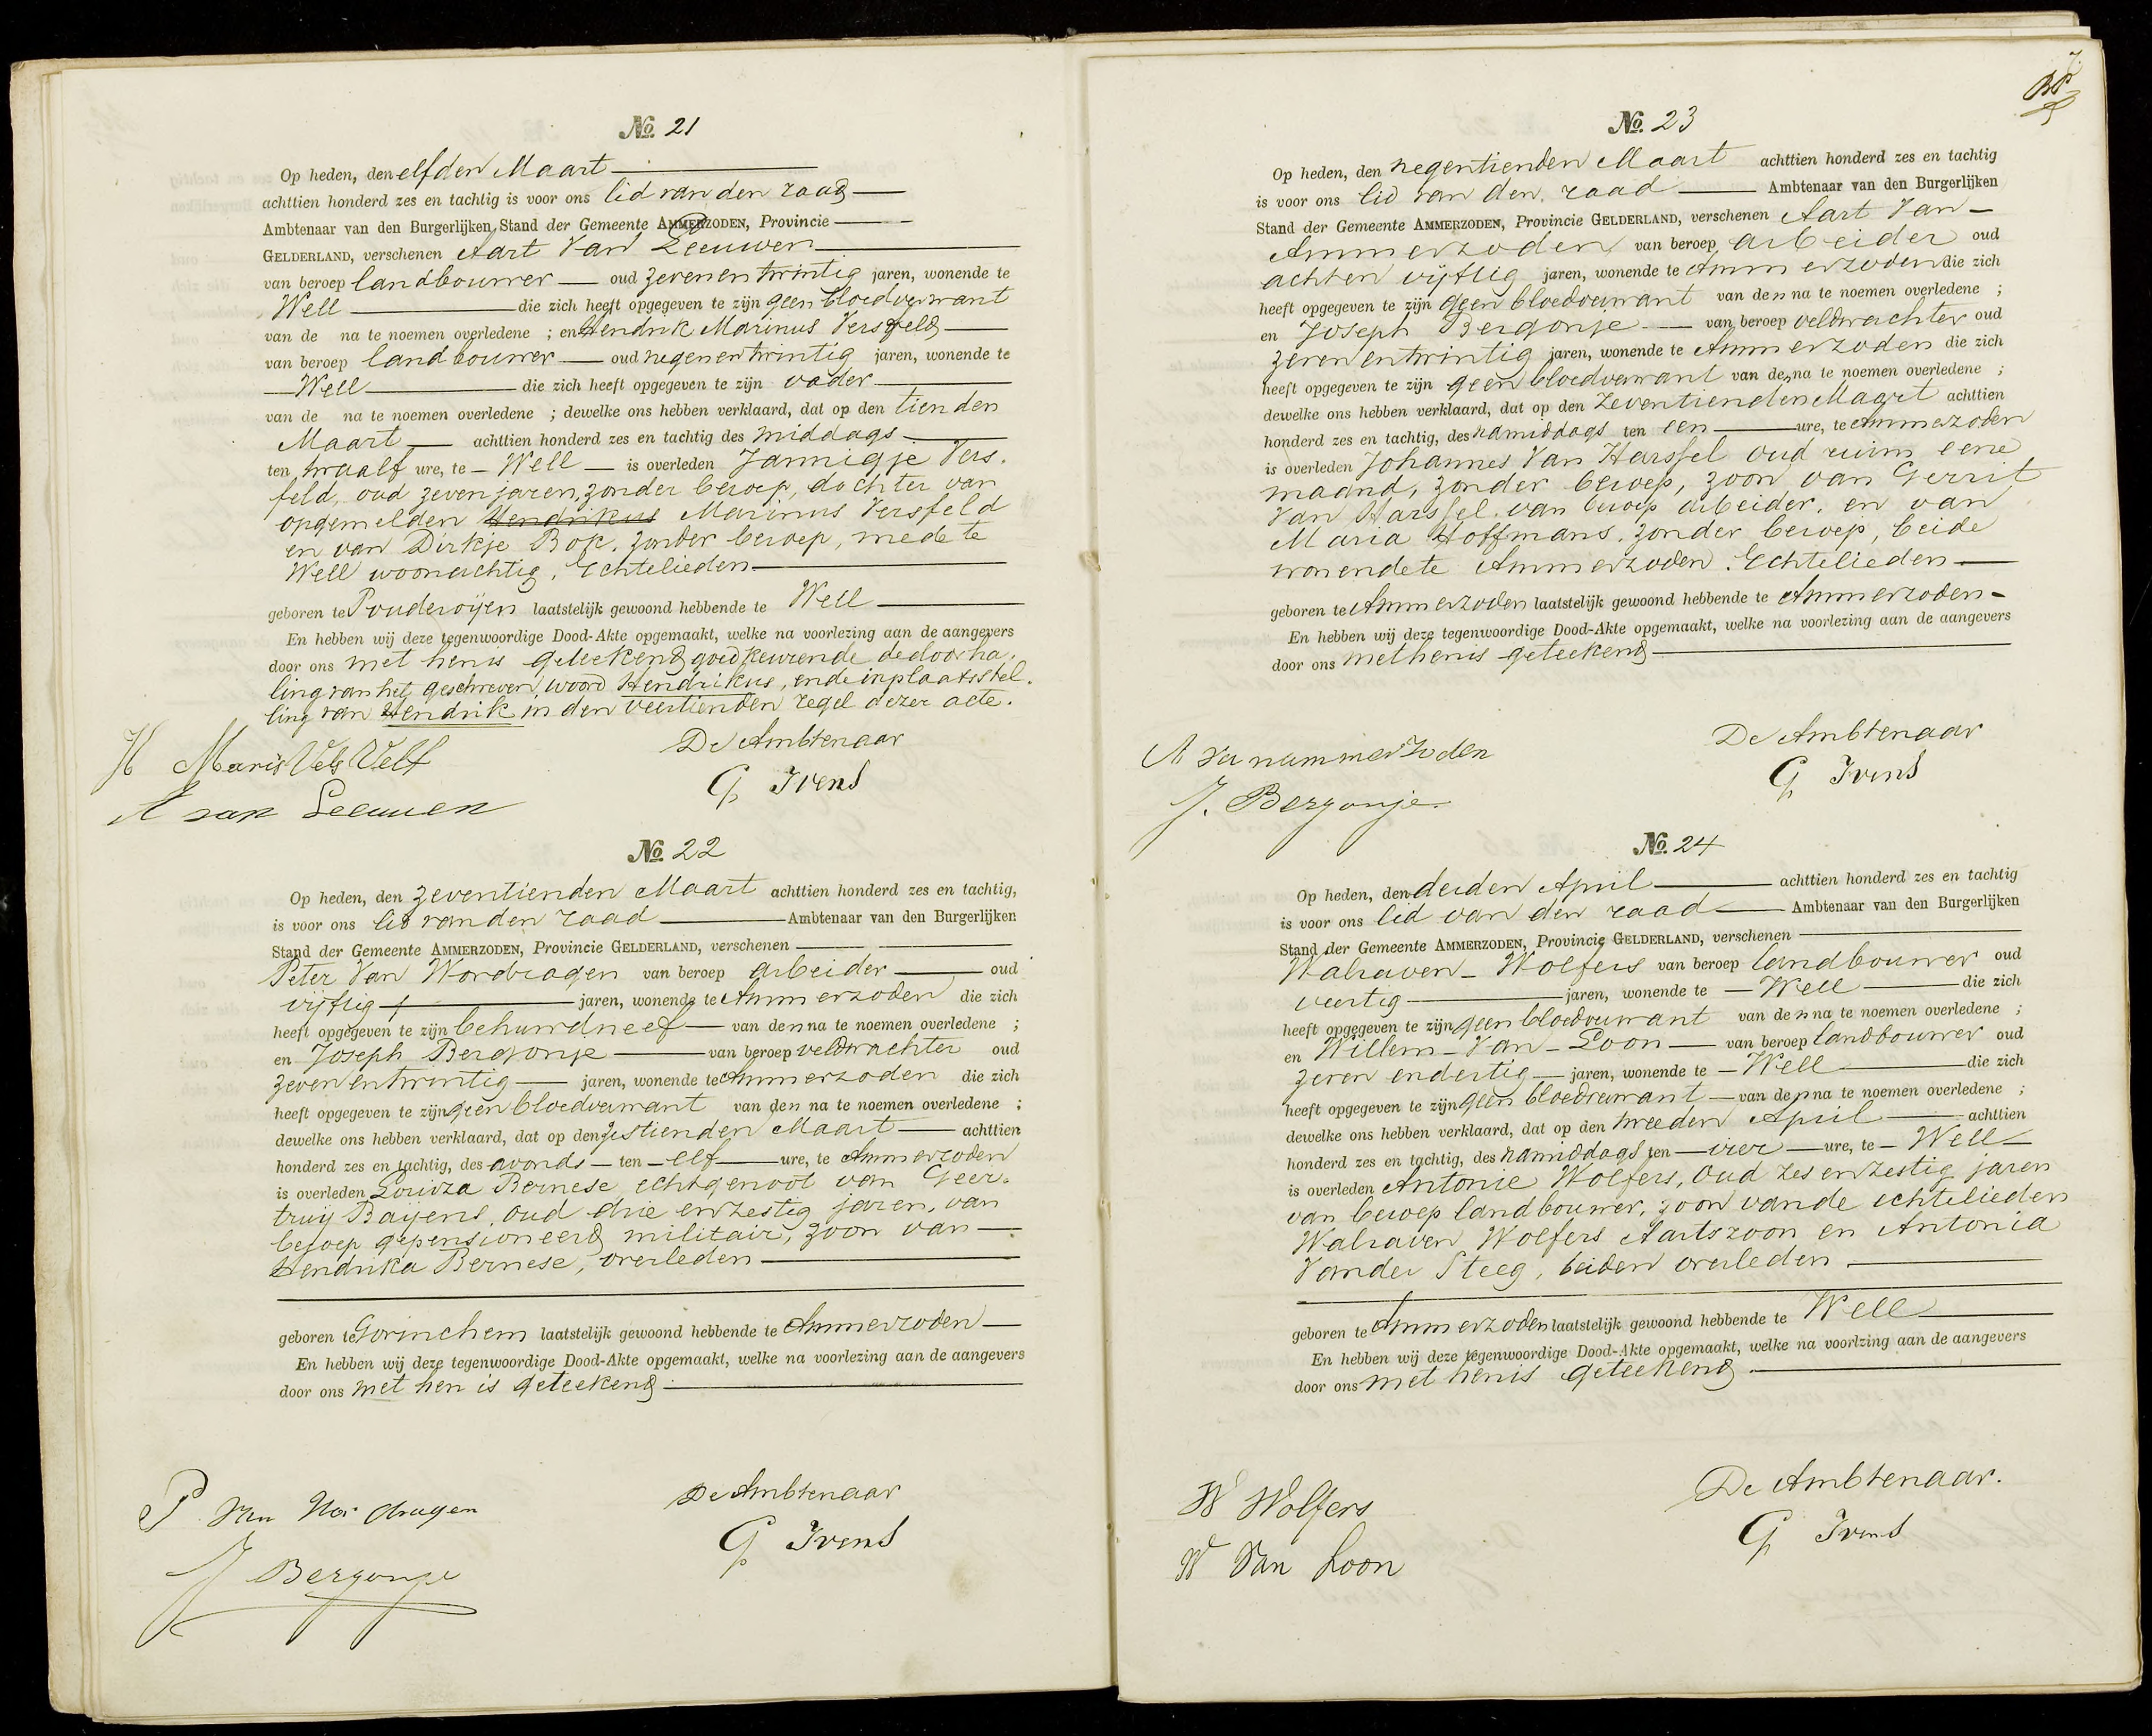 No. 21
Op heden, den elfden Maart
achttien honderd zes en tachtig is voor ons lid van den raad
Ambtenaar van den Burgerlijken Stand der Gemeente AMMERZODEN, Provincie
GELDERLAND, verschenen Aart Van Leeuwen
van beroep landbouwer oud zevenentwintig jaren, wonende te
Well die zich heeft opgegeven te zijn geen bloedverwant
van de na te noemen overledene ; en Hendrik Marinus Versfeld
van beroep landbouwer oud negenentwintig jaren, wonende te
Well die zich heeft opgegeven te zijn vader
van de na te noemen overledene ; dewelke ons hebben verklaard, dat op den tienden
Maart achttien honderd zes en tachtig des middags
ten twaalf ure, te Well is overleden Jannigje Vers.
feld, oud zeven jaren, zonder beroep, dochter van
opgemelden Hendrikus Marinus Versfeld
en van Dirkje Bok, zonder beroep, mede te
Well woonachtig, Echtelieden
geboren te Pouderoijen laatstelijk gewoond hebbende te Well
En hebben wij deze tegenwoordige Dood-Akte opgemaakt, welke na voorlezing aan de aangevers
door ons met hen is geteekend goedkeurende de doorha.
ling van het geschreven woord Hendrikus, en de inplaatsstel.
ling van Hendrik in den veertienden regel dezer acte.
De Ambtenaar
H Maris Vels Velt
G Ivens
A van Leeuwen
No. 22
Op heden, den zeventienden Maart achttien honderd zes en tachtig,
is voor ons lid van den raad Ambtenaar van den Burgerlijken
Stand der Gemeente AMMERZODEN, Provincie GELDERLAND, verschenen
Peter Van Wordragen van beroep arbeider oud
vijftig jaren, wonende te Ammerzoden die zich
heeft opgegeven te zijn behuwdneef van den na te noemen overledene ;
en Joseph Bergonje van beroep veldwachter oud
zevenentwintig jaren, wonende te Ammerzoden die zich
heeft opgegeven te zijn geen bloedverwant van den na te noemen overledene ;
dewelke ons hebben verklaard, dat op den zestienden Maart achttien
honderd zes en tachtig, des avonds ten elf ure, te Ammerzoden
is overleden Louiza Bernese echtgenoot van Geer.
truij Baijens, oud drie en zestig jaren, van
beroep gepensioneerd militair, zoon van
Hendrika Bernese, overleden
geboren te Gorinchem laatstelijk gewoond hebbende te Ammerzoden
En hebben wij deze tegenwoordige Dood-Akte opgemaakt, welke na voorlezing aan de aangevers
door ons met hen is geteekend
De Ambtenaar
P Van Wordragen
G Ivens
J Bergonje
No. 23
Op heden, den negentienden Maart achttien honderd zes en tachtig
is voor ons lid van den raad Ambtenaar van den Burgerlijken
Stand der Gemeente AMMERZODEN, Provincie GELDERLAND, verschenen Aart Van
Ammerzoden van beroep arbeider oud
acht en vijftig jaren, wonende te Ammerzoden die zich
heeft opgegeven te zijn geen bloedverwant van den na te noemen overledene ;
en Joseph Bergonje van beroep veldwachter oud
zevenentwintig jaren, wonende te Ammerzoden die zich
heeft opgegeven te zijn geen bloedverwant van den na te noemen overledene ;
dewelke ons hebben verklaard, dat op den zeventienden Maart achttien
honderd zes en tachtig, des namiddags ten een ure, te Ammerzoden
is overleden Johannes Van Harssel oud ruim eene
maand, zonder beroep, zoon van Gerrit
Van Harssel, van beroep arbeider, en van
Maria Hoffmans, zonder beroep, beide
wonende te Ammerzoden. Echtelieden
geboren te Ammerzoden laatstelijk gewoond hebbende te Ammerzoden
En hebben wij deze tegenwoordige Dood-Akte opgemaakt, welke na voorlezing aan de aangevers
door ons met hen is geteekend
De Ambtenaar
A van ammerzoden
G Ivens
J. Bergonje
No. 24
Op heden, den derden April achttien honderd zes en tachtig
is voor ons lid van den raad Ambtenaar van den Burgerlijken
Stand der Gemeente AMMERZODEN, Provincie GELDERLAND, verschenen
Walraven Wolfers van beroep landbouwer oud
veertig jaren, wonende te Well die zich
heeft opgegeven te zijn geen bloedverwant van den na te noemen overledene ;
en Willem Van Loon van beroep landbouwer oud
zeven en dertig jaren, wonende te Well die zich
heeft opgegeven te zijn geen bloedverwant van den na te noemen overledene ;
dewelke ons hebben verklaard, dat op den tweeden April achttien
honderd zes en tachtig, des namiddags ten vier ure, te Well
is overleden Antonie Wolfers, oud zes en zestig jaren
van beroep landbouwer, zoon van de echtelieden
Walraven Wolfers Aartszoon en Antonia
Van der Steeg, beiden overleden
geboren te Ammerzoden laatstelijk gewoond hebbende te Well
En hebben wij deze tegenwoordige Dood-Akte opgemaakt, welke na voorlzing aan de aangevers
door ons met hen is geteekend
De Ambtenaar.
W Wolfers
G Ivens
W Van Loon